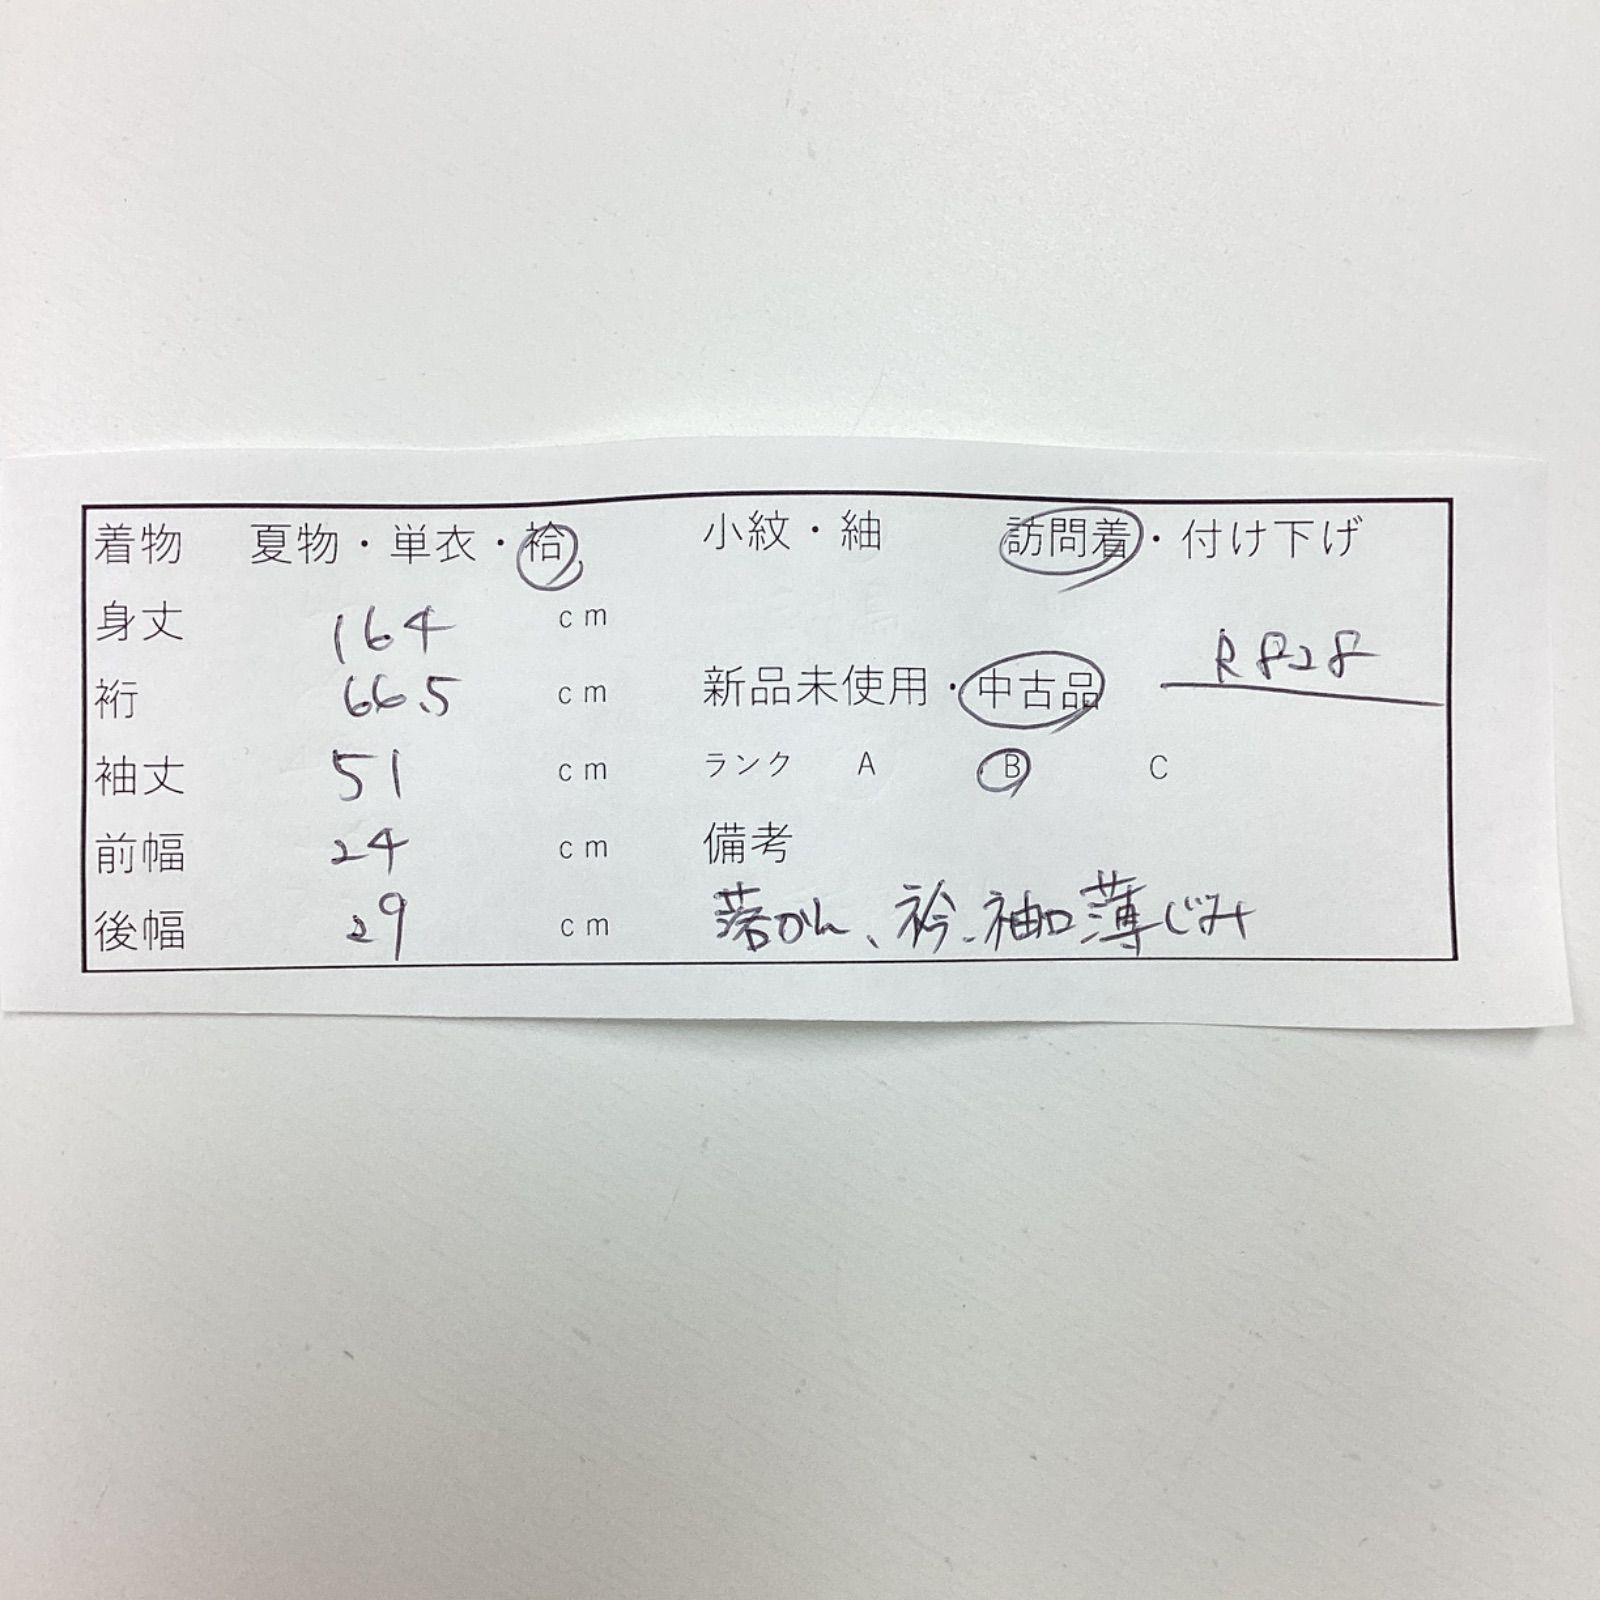 着物 夏物・単衣・袷 小紋・紬 訪問着・付け下げ
身丈 164 cm
R828
裄 66.5 cm 新品未使用・中古品
袖丈 51 cm ランク A B C
前幅 24 cm 備考
後幅 29 cm 落かん、衿、袖口薄じみ